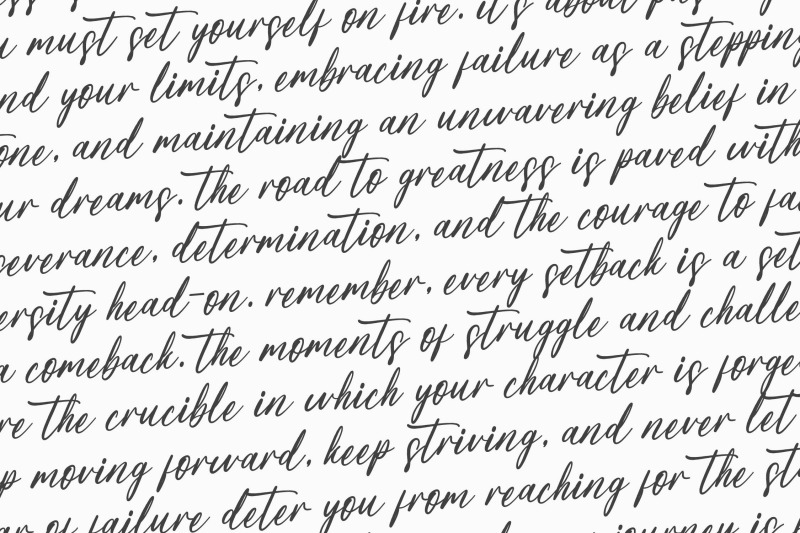 must set yourself on fire. it's about
nd your limits, embracing failure as a stepping
one, and maintaining an unwavering belief in
ur dreams. the road to greatness is paved with
severance, determination, and the courage to fa
ersity head-on. remember, every setback is a set
a comeback. the moments of struggle and challe
re the crucible in which your character is forge
p moving forward, keep striving, and never let
ar of failure deter you from reaching for the st
journey is